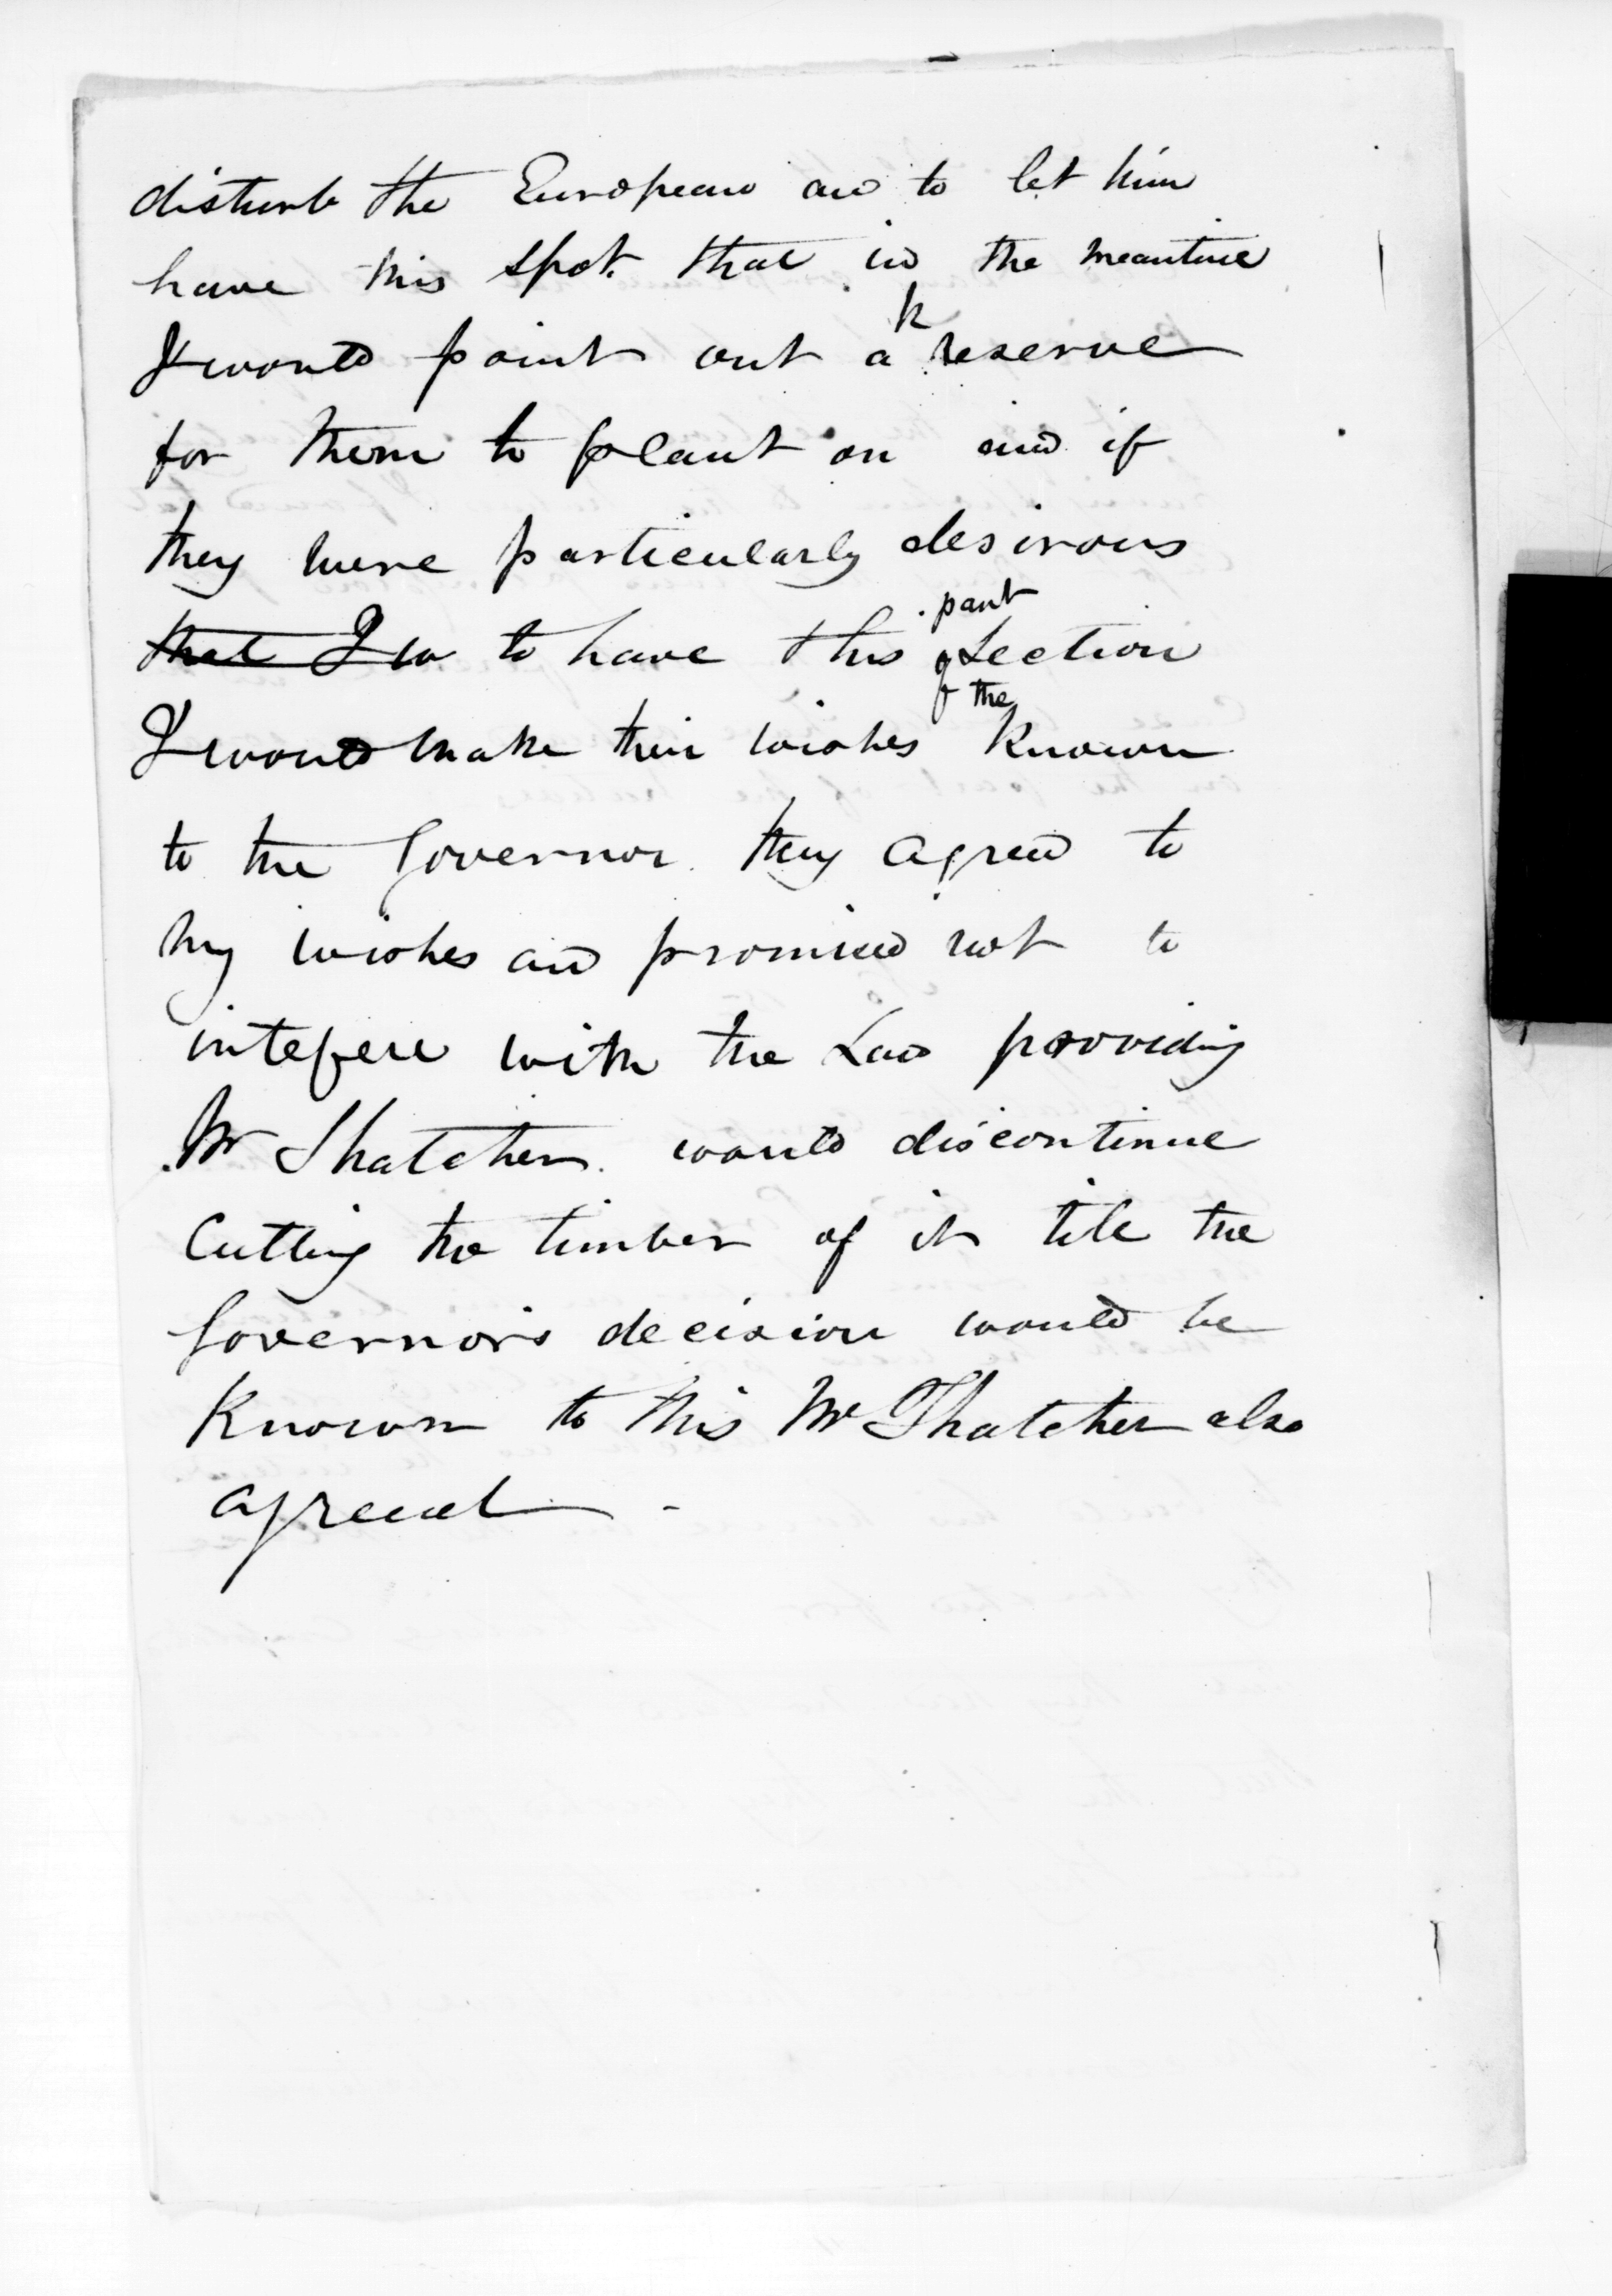 disturb the European and to let him
have this spot. that in the meantime
I would point out a reserve
for them to plant on and if
they were particularly desirous
that I w to have this part of the Section
I would make their wishes known
to the Governor. they agreed to
my wishes and promised not to
intefere with the Law providing
Mr Thatcher would discontinue
Cutting the timber of it till the
Governor's decision would be
Known to this Mr Thatcher also
agreed -